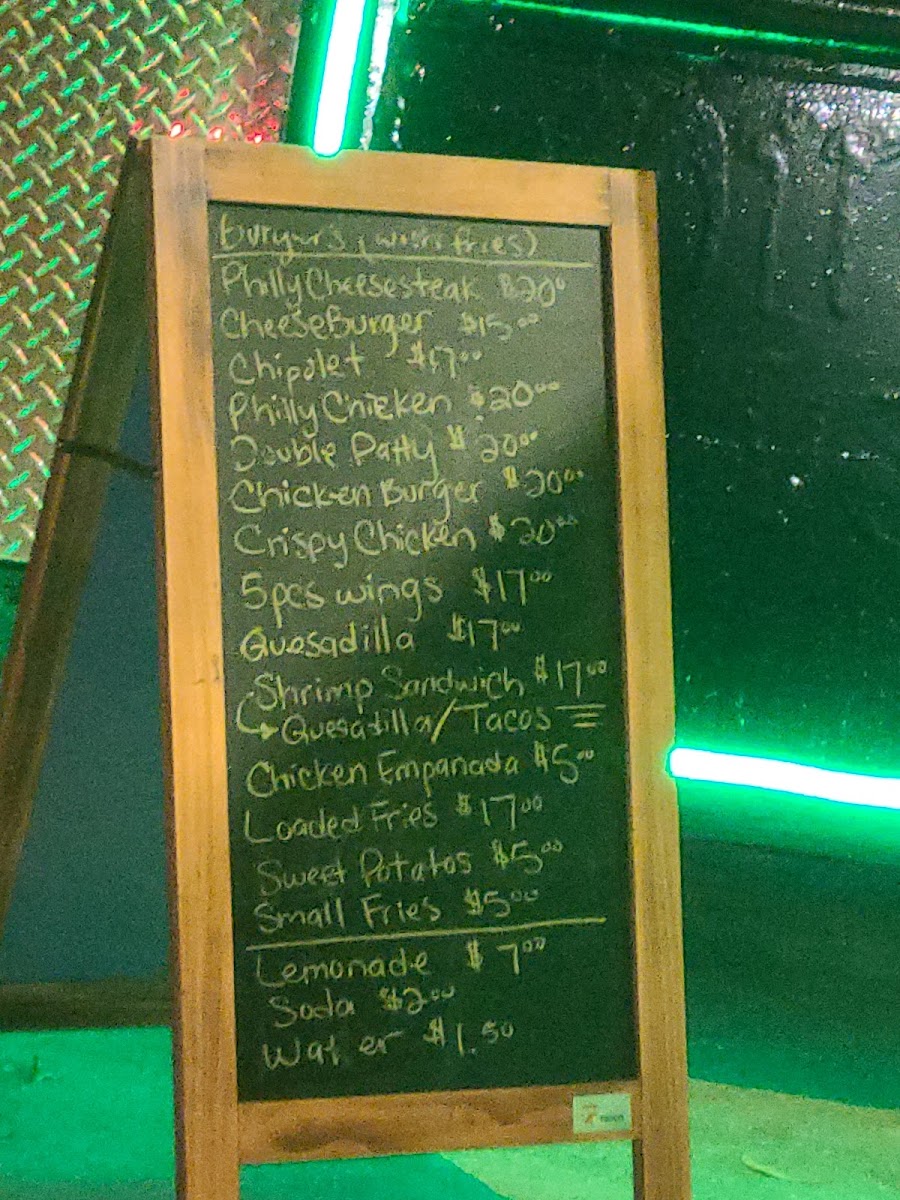 burgers, (with fries)
Philly Cheesesteak $20⁰
CheeseBurger $15⁰⁰
Chipolet $17⁰⁰
Philly Chicken $20⁰⁰
Double Patty $20⁰⁰
Chicken Burger $20⁰⁰
Crispy Chicken $20⁰⁰
5pcs wings $17⁰⁰
Quesadilla $17⁰⁰
Shrimp Sandwich $17⁰⁰
Quesadilla/Tacos
Chicken Empanada $5⁰⁰
Loaded Fries $17⁰⁰
Sweet Potatos $5⁰⁰
Small Fries $5⁰⁰
Lemonade $7⁰⁰
Soda $2⁰⁰
Water $1.50